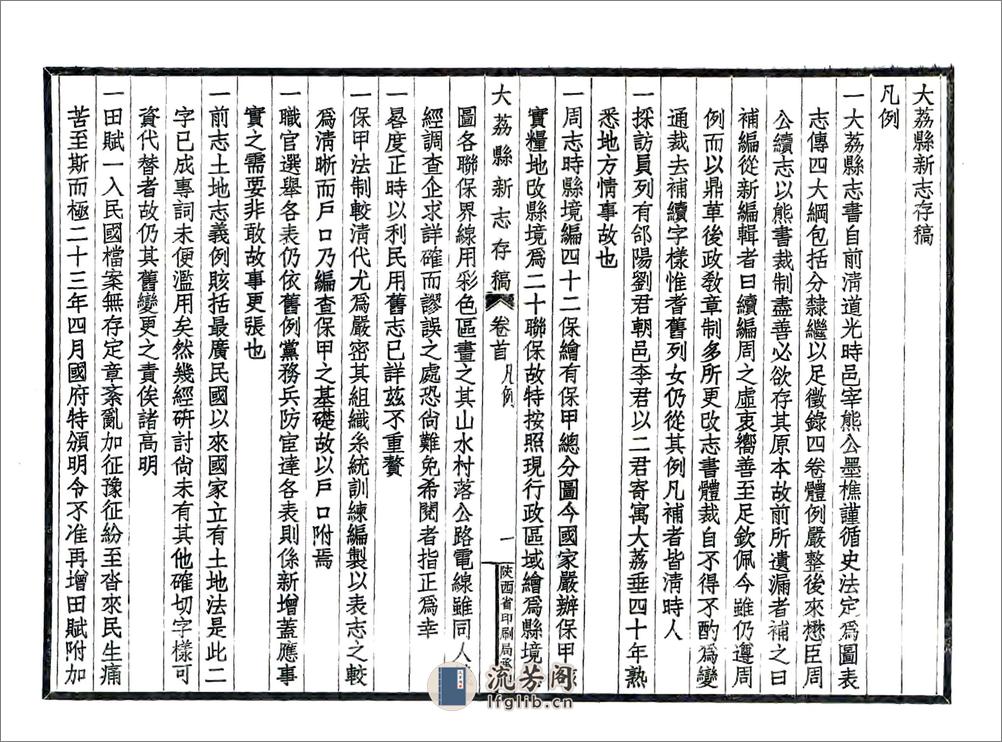 大荔縣新志存稿
凡例
一大荔縣志書自前清道光時邑宰熊公墨樵謹循史法定爲圖表
志傳四大綱包括分隸繼以足徵錄四卷體例嚴整後來懋臣周
公續志以熊書裁制盡善必欲存其原本故前所遺漏者補之曰
補編從新編輯者曰續編周之虛衷嚮善至足欽佩今雖仍遵周
例而以鼎革後政敎章制多所更改志書體裁自不得不酌爲變
通裁去補續字樣惟耆舊列女仍從其例凡補者皆淸時人
一採訪員列有郃陽劉君朝邑李君以二君寄寓大荔垂四十年熟
悉地方情事故也
一周志時縣境編四十二保繪有保甲總分圖今國家嚴辦保甲
實糧地改縣境爲二十聯保故特按照現行政區域繪爲縣境
大荔縣新志存稿 卷首 凡例 一 陝西省印刷局
圖各聯保界線用彩色區畫之其山水村落公路電線雖同人
經調查企求詳確而謬誤之處恐尙難免希閱者指正爲幸
一晷度正時以利民用舊志已詳茲不重贅
一保甲法制較清代尤爲嚴密其組織系統訓練編製以表志之較
爲清晰而戶口乃編查保甲之基礎故以戶口附焉
一職官選舉各表仍依舊例黨務兵防宦達各表則係新增蓋應事
實之需要非敢故事更張也
一前志土地志義例賅括最廣民國以來國家立有土地法是此二
字已成專詞未便濫用矣然幾經研討尙未有其他確切字樣可
資代替者故仍其舊變更之責俟諸高明
一田賦一入民國檔案無存定章紊亂加征豫征紛至沓來民生痛
苦至斯而極二十三年四月國府特頒明令不准再增田賦附加
流芳阁
lfglib.cn